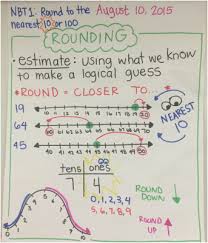 NBT1: Round to the August 10, 2015
nearest 10 or 100
ROUNDING
• estimate: using what we know
to make a logical guess
• ROUND = CLOSER TO...
19
10 11 12 13 14 15 16 17 18 19 20
64
60 61 62 63 64 65 66 67 68 69 70
45
40 41 42 43 44 45 46 47 48 49 50
NEAREST
10
tens ones
7 4
0, 1, 2, 3, 4
5, 6, 7, 8, 9
ROUND
DOWN
ROUND
UP